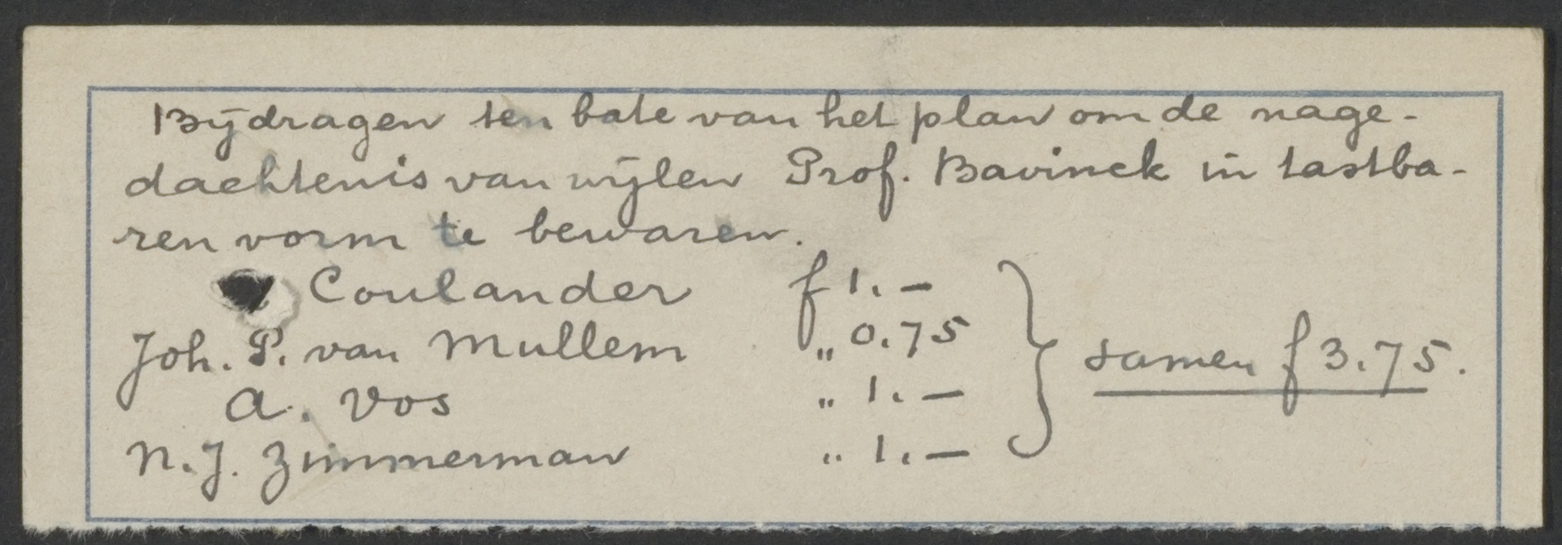 Bijdragen ten bate van het plan om de nage-
dachtenis van wijlen Prof. Bavinck in tastba-
ren vorm te bewaren.
Coulander f 1.—
Joh. P. van Mullem „ 0.75
A. Vos „ 1.—
N.J. Zimmerman „ 1.—
samen f 3.75.